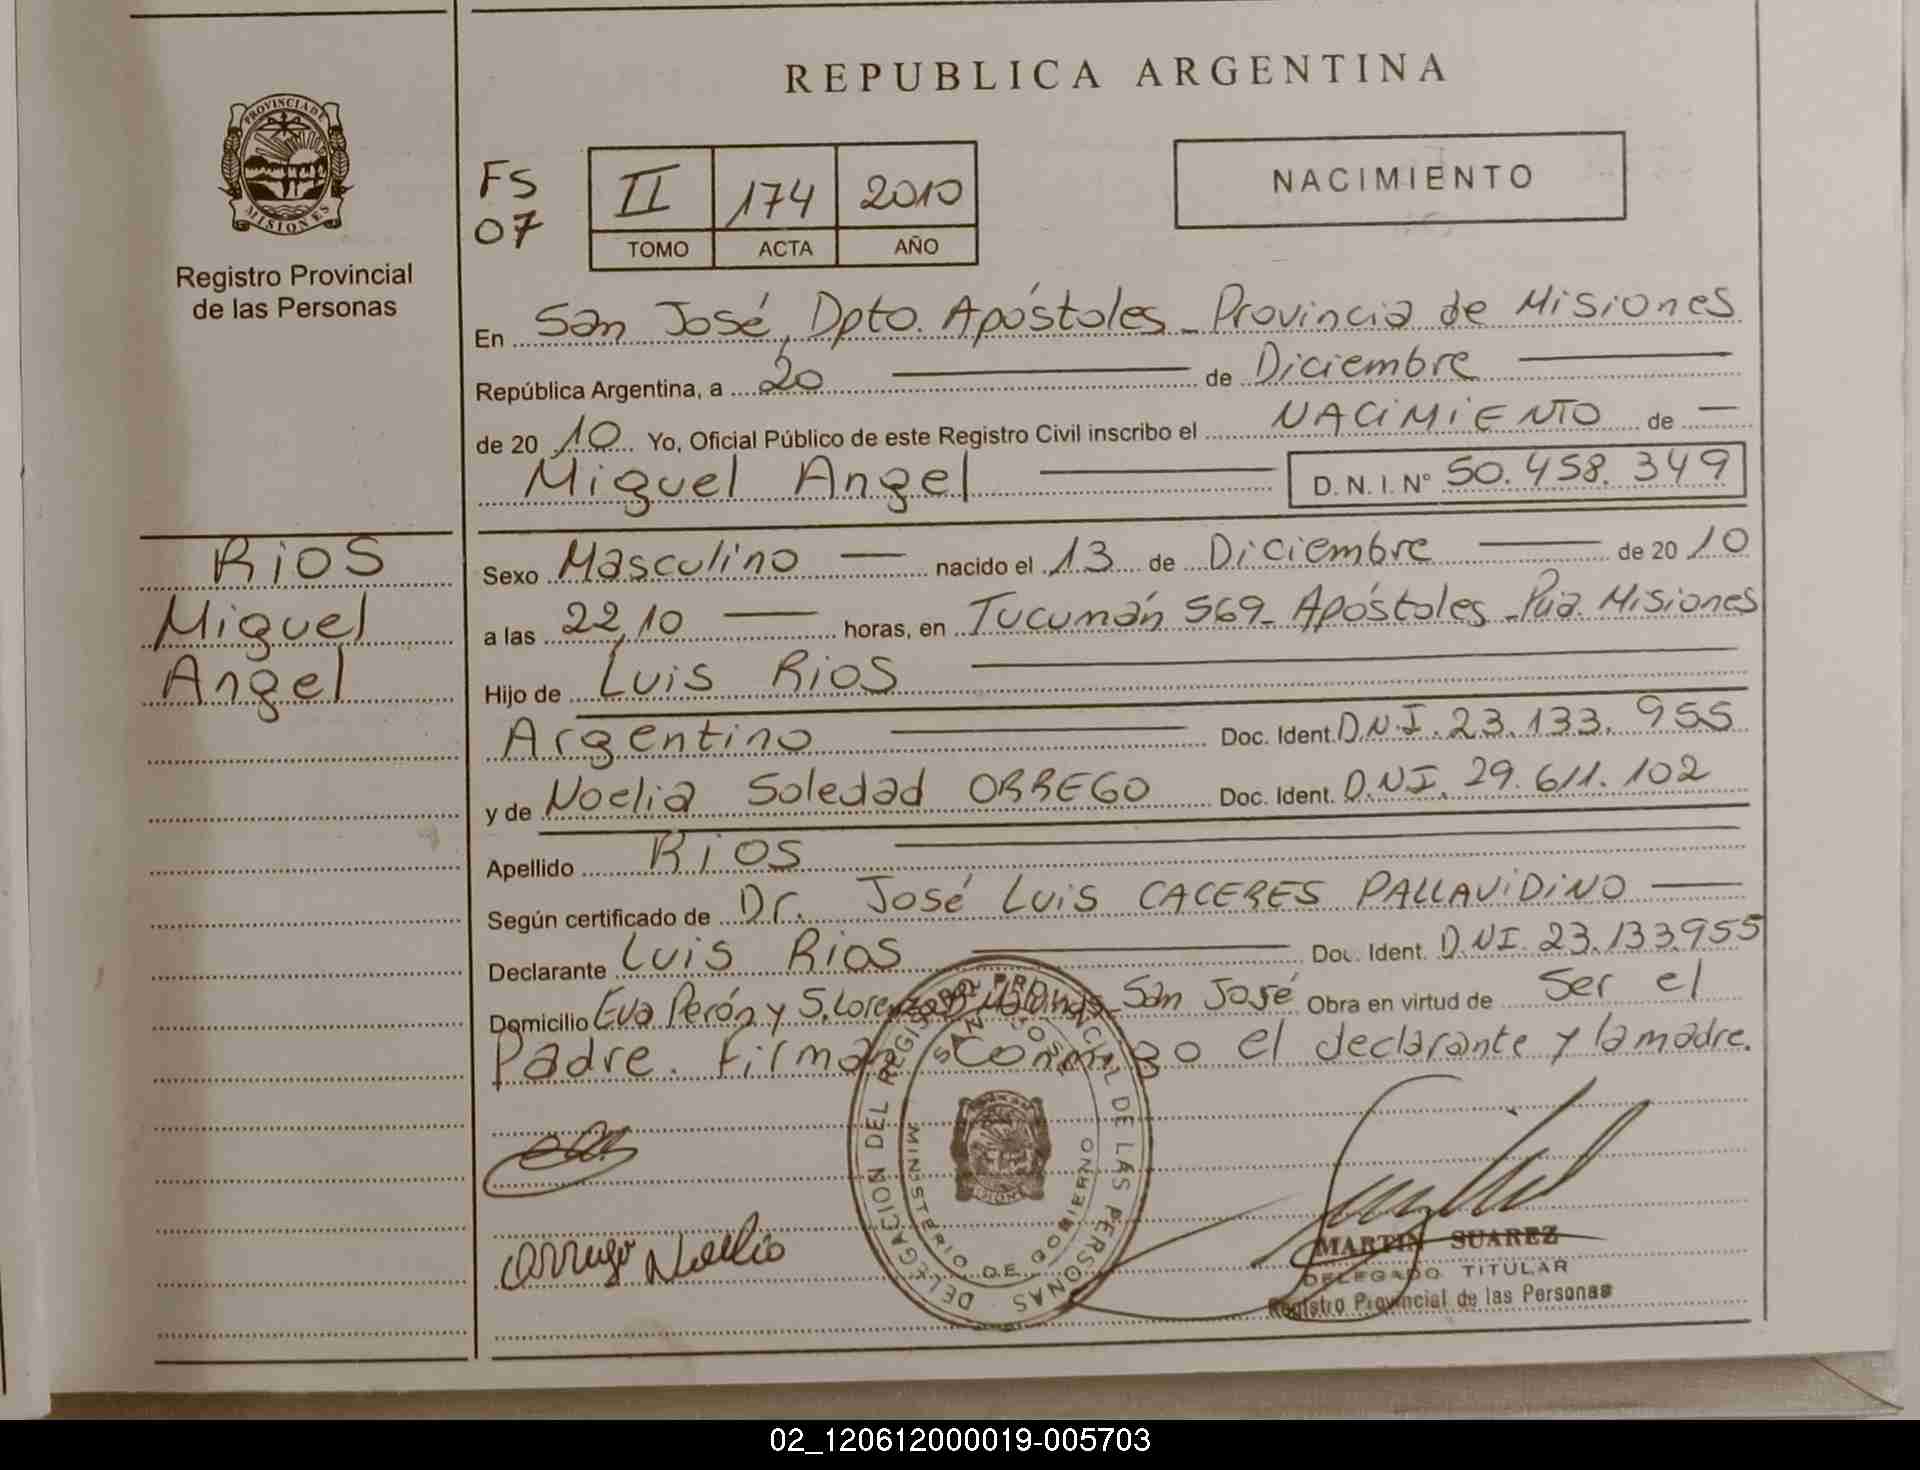 REPUBLICA ARGENTINA
PROVINCIA DE
MISIONES
Registro Provincial
de las Personas
FS
07
II 174 2010
TOMO ACTA AÑO
NACIMIENTO
En San José, Dpto. Apóstoles - Provincia de Misiones
República Argentina, a 20 de Diciembre
de 20 10 Yo, Oficial Público de este Registro Civil inscribo el NACIMIENTO de
Miguel Angel D.N.I. N° 50.458.349
RIOS
Miguel
Angel
Sexo Masculino nacido el 13 de Diciembre de 20 10
a las 22,10 horas, en Tucumán 569 - Apóstoles - Pcia. Misiones
Hijo de Luis RIOS
Argentino Doc. Ident. D.N.I. 23.133.955
y de Noelia Soledad ORREGO Doc. Ident. D.N.I. 29.611.102
Apellido RIOS
Según certificado de Dr. José Luis CACERES PALLAVIDINO
Declarante Luis RIOS Doc. Ident. D.N.I. 23.133.955
Domicilio Eva Perón y S. Lorenzo San José Obra en virtud de Ser el
Padre. Firman Conmigo el declarante y la madre.
DELEGACION DEL REGISTRO PROVINCIAL DE LAS PERSONAS
SAN JOSE
MINISTERIO DE GOBIERNO
MISIONES
orrego Noelia
MARTIN SUAREZ
DELEGADO TITULAR
Registro Provincial de las Personas
02_120612000019-005703